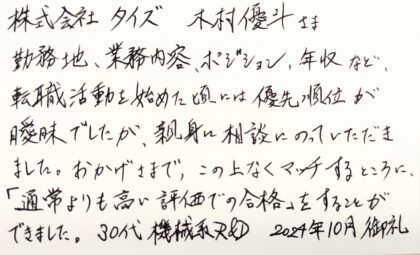 株式会社 タイズ　木村優斗さま
勤務地、業務内容、ポジション、年収など、
転職活動を始めた頃には優先順位が
曖昧でしたが、親身に相談にのっていただき
ました。おかげさまで、この上なくマッチするところに、
「通常よりも高い評価での合格」をすることが
できました。 30代 機械系R&D　2024年10月 御礼